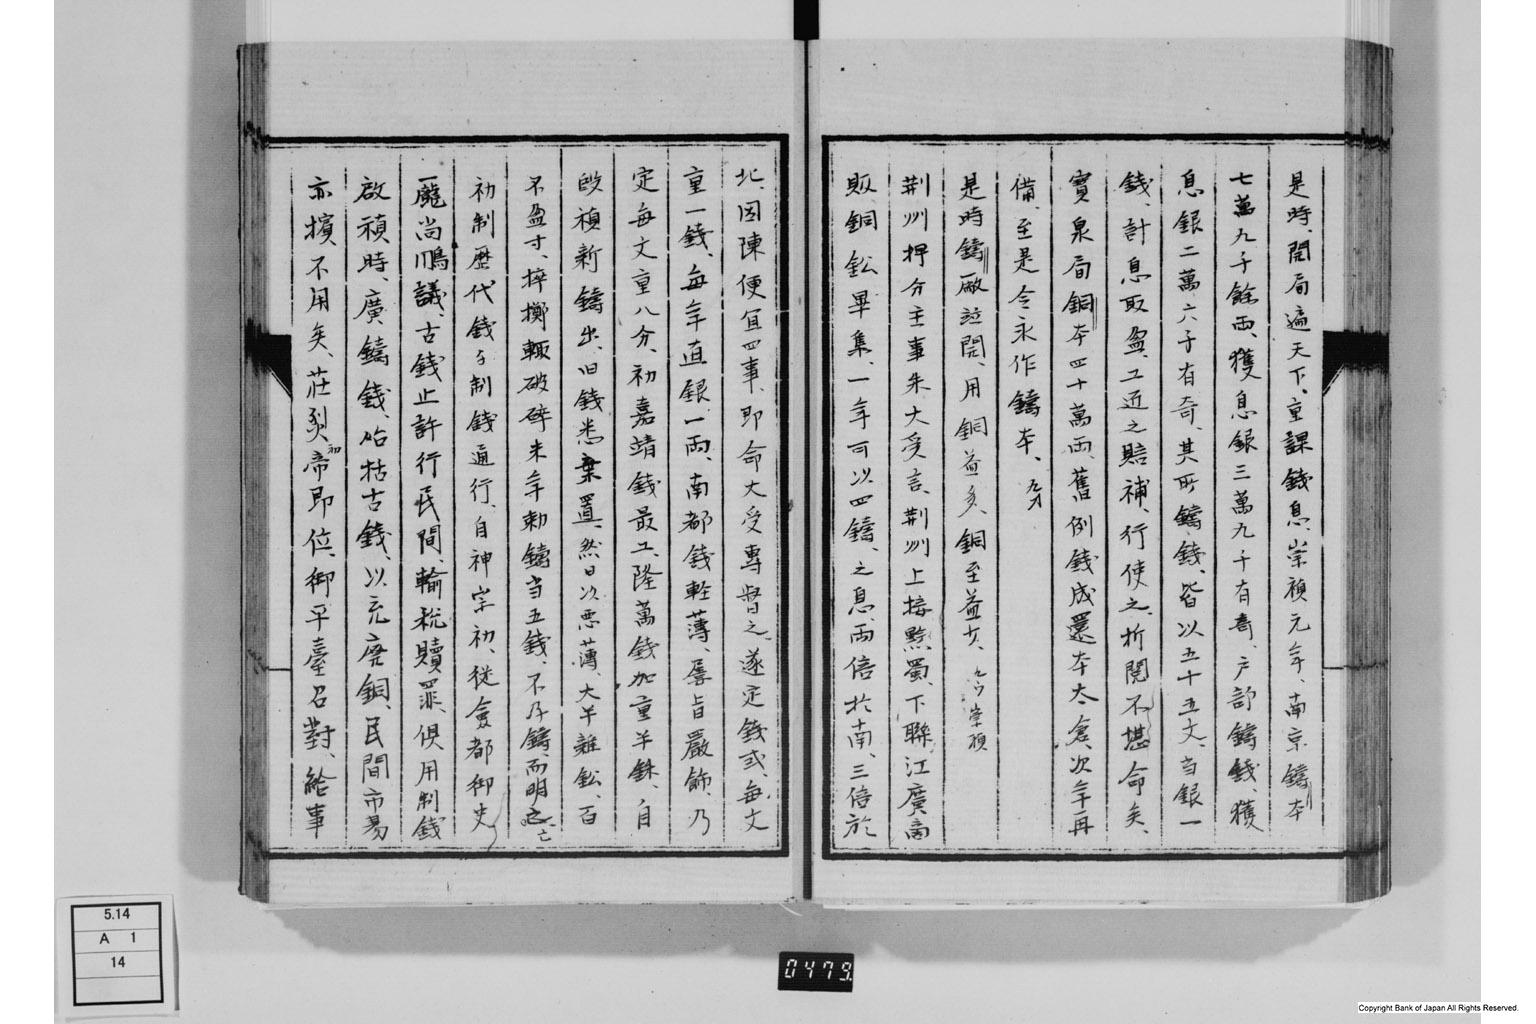 是時、開局遍天下、重課錢息、崇禎元年、南京鑄本
七萬九千餘両、獲息銀三萬九千有奇、戸部鑄錢、獲
息銀二萬六千有奇、其所鑄錢、皆以五十五文、当銀一
錢、計息取盈、工近之賠補、行使之折閲、不堪命矣、
寶泉局銅本四十萬両、舊例錢成還本太倉、次年再
備、至是令永作鑄本、
是時鑄廠竝開、用銅益多、銅至益少、
荊州抽分主事朱大受言、荊州上接黔蜀、下聯江廣、商
販銅鈆畢集、一年可以四鑄、之息、両倍於南、三倍於
北、因陳便宜四事、即命大受專督之、遂定錢式、每文
重一錢、每年直銀一両、南都錢輕薄、屢旨嚴飾、乃
定每文重八分、初嘉靖錢最工、隆萬錢加重半銖、自
啟禎新鑄出、旧錢悉棄置、然日以悪薄、大半雜鈆、百
不盈寸、捽擲輒破碎、末年勅鑄当五錢、不及鑄、而明亡
初制歴代錢与制錢通行、自神宗初、從僉都御史
龐尚鵬議、古錢止許行民間、輸税贖罪、俱用制錢
啟禎時、廣鑄錢、始括古錢、以充廃銅、民間市易
亦擯不用矣、莊烈帝初即位、御平臺召對、給事
5.14
A 1
14
0479
Copyright Bank of Japan All Rights Reserved.